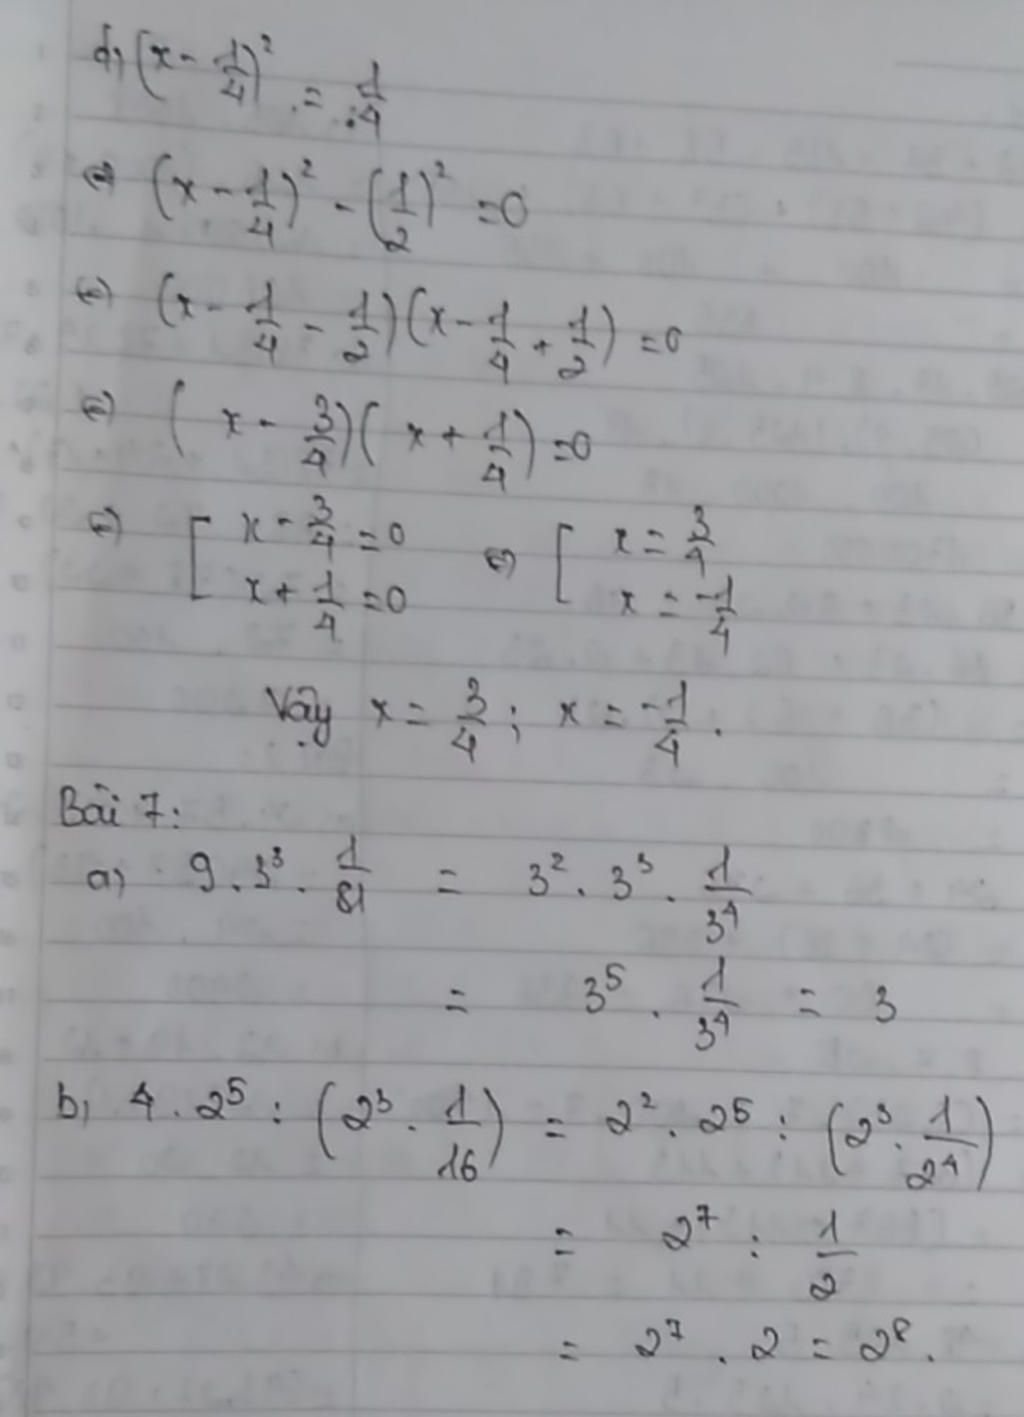 d, (x - 1/4)² = 1/4
⇔ (x - 1/4)² - (1/2)² = 0
⇔ (x - 1/4 - 1/2)(x - 1/4 + 1/2) = 0
⇔ (x - 3/4)(x + 1/4) = 0
⇔ [ x - 3/4 = 0 ⇔ [ x = 3/4
x + 1/4 = 0 x = -1/4
Vậy x = 3/4 ; x = -1/4 .
Bài 7:
a, 9 . 3³ . 1/81 = 3² . 3³ . 1/3⁴
= 3⁵ . 1/3⁴ = 3
b, 4 . 2⁵ : (2³ . 1/16) = 2² . 2⁵ : (2³ . 1/2⁴)
= 2⁷ : 1/2
= 2⁷ . 2 = 2⁸ .